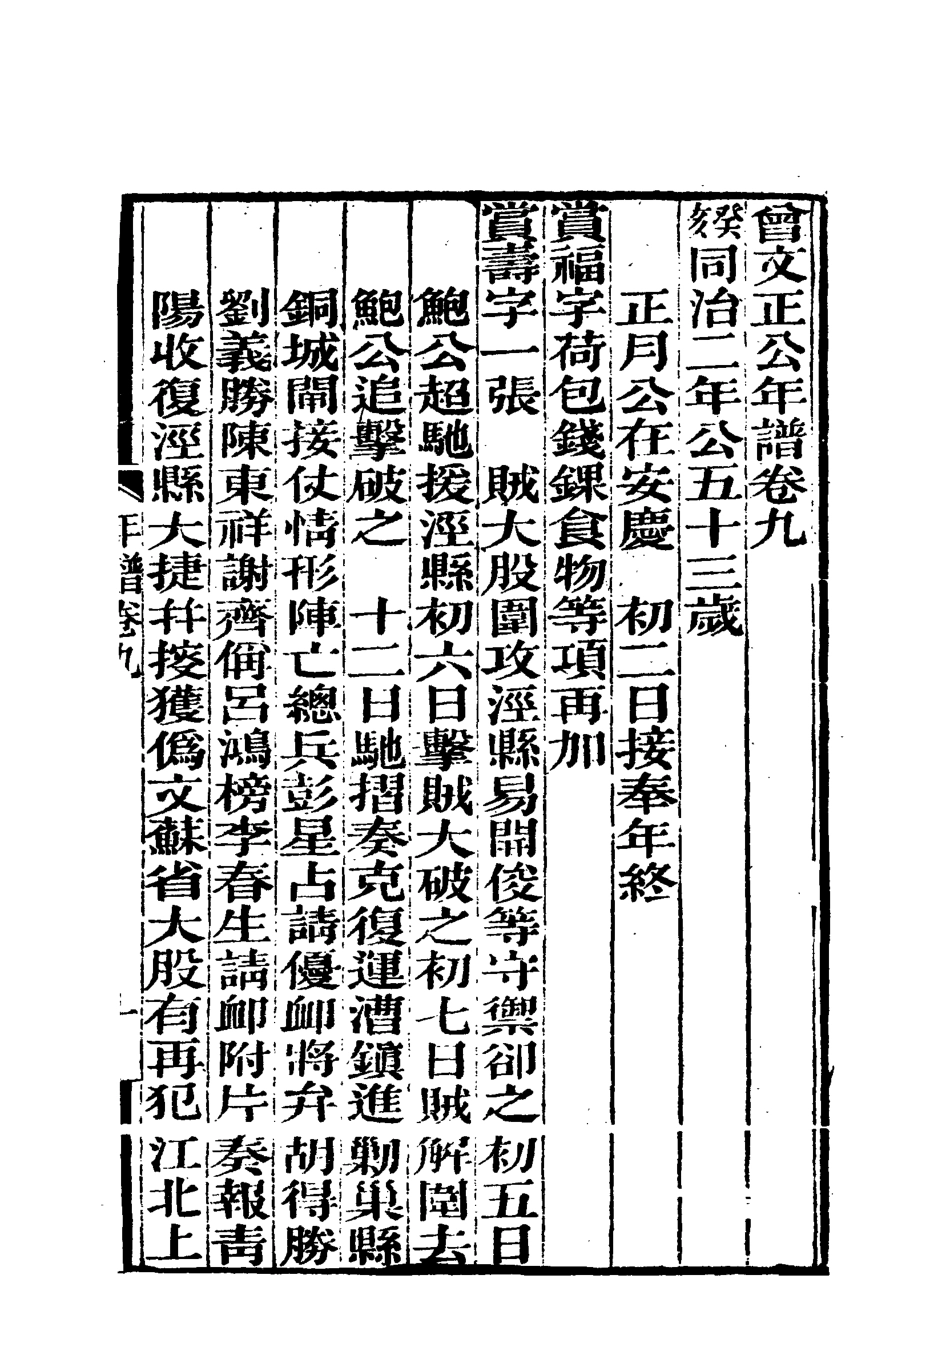 曾文正公年譜卷九
癸亥同治二年公五十三歲
正月公在安慶　初二日接奉年終
賞福字荷包錢錁食物等項再加
賞壽字一張　賊大股圍攻涇縣易開俊等守禦卻之初五日
鮑公超馳援涇縣初六日擊賊大破之初七日賊解圍去
鮑公追擊破之　十二日馳摺奏克復運漕鎮進勦巢縣
銅城閘接仗情形陣亡總兵彭星占請優卹將弁胡得勝
劉義勝陳東祥謝齊倘呂鴻榜李春生請卹附片奏報青
陽收復涇縣大捷幷接獲僞文蘇省大股有再犯江北上
年譜卷九
一